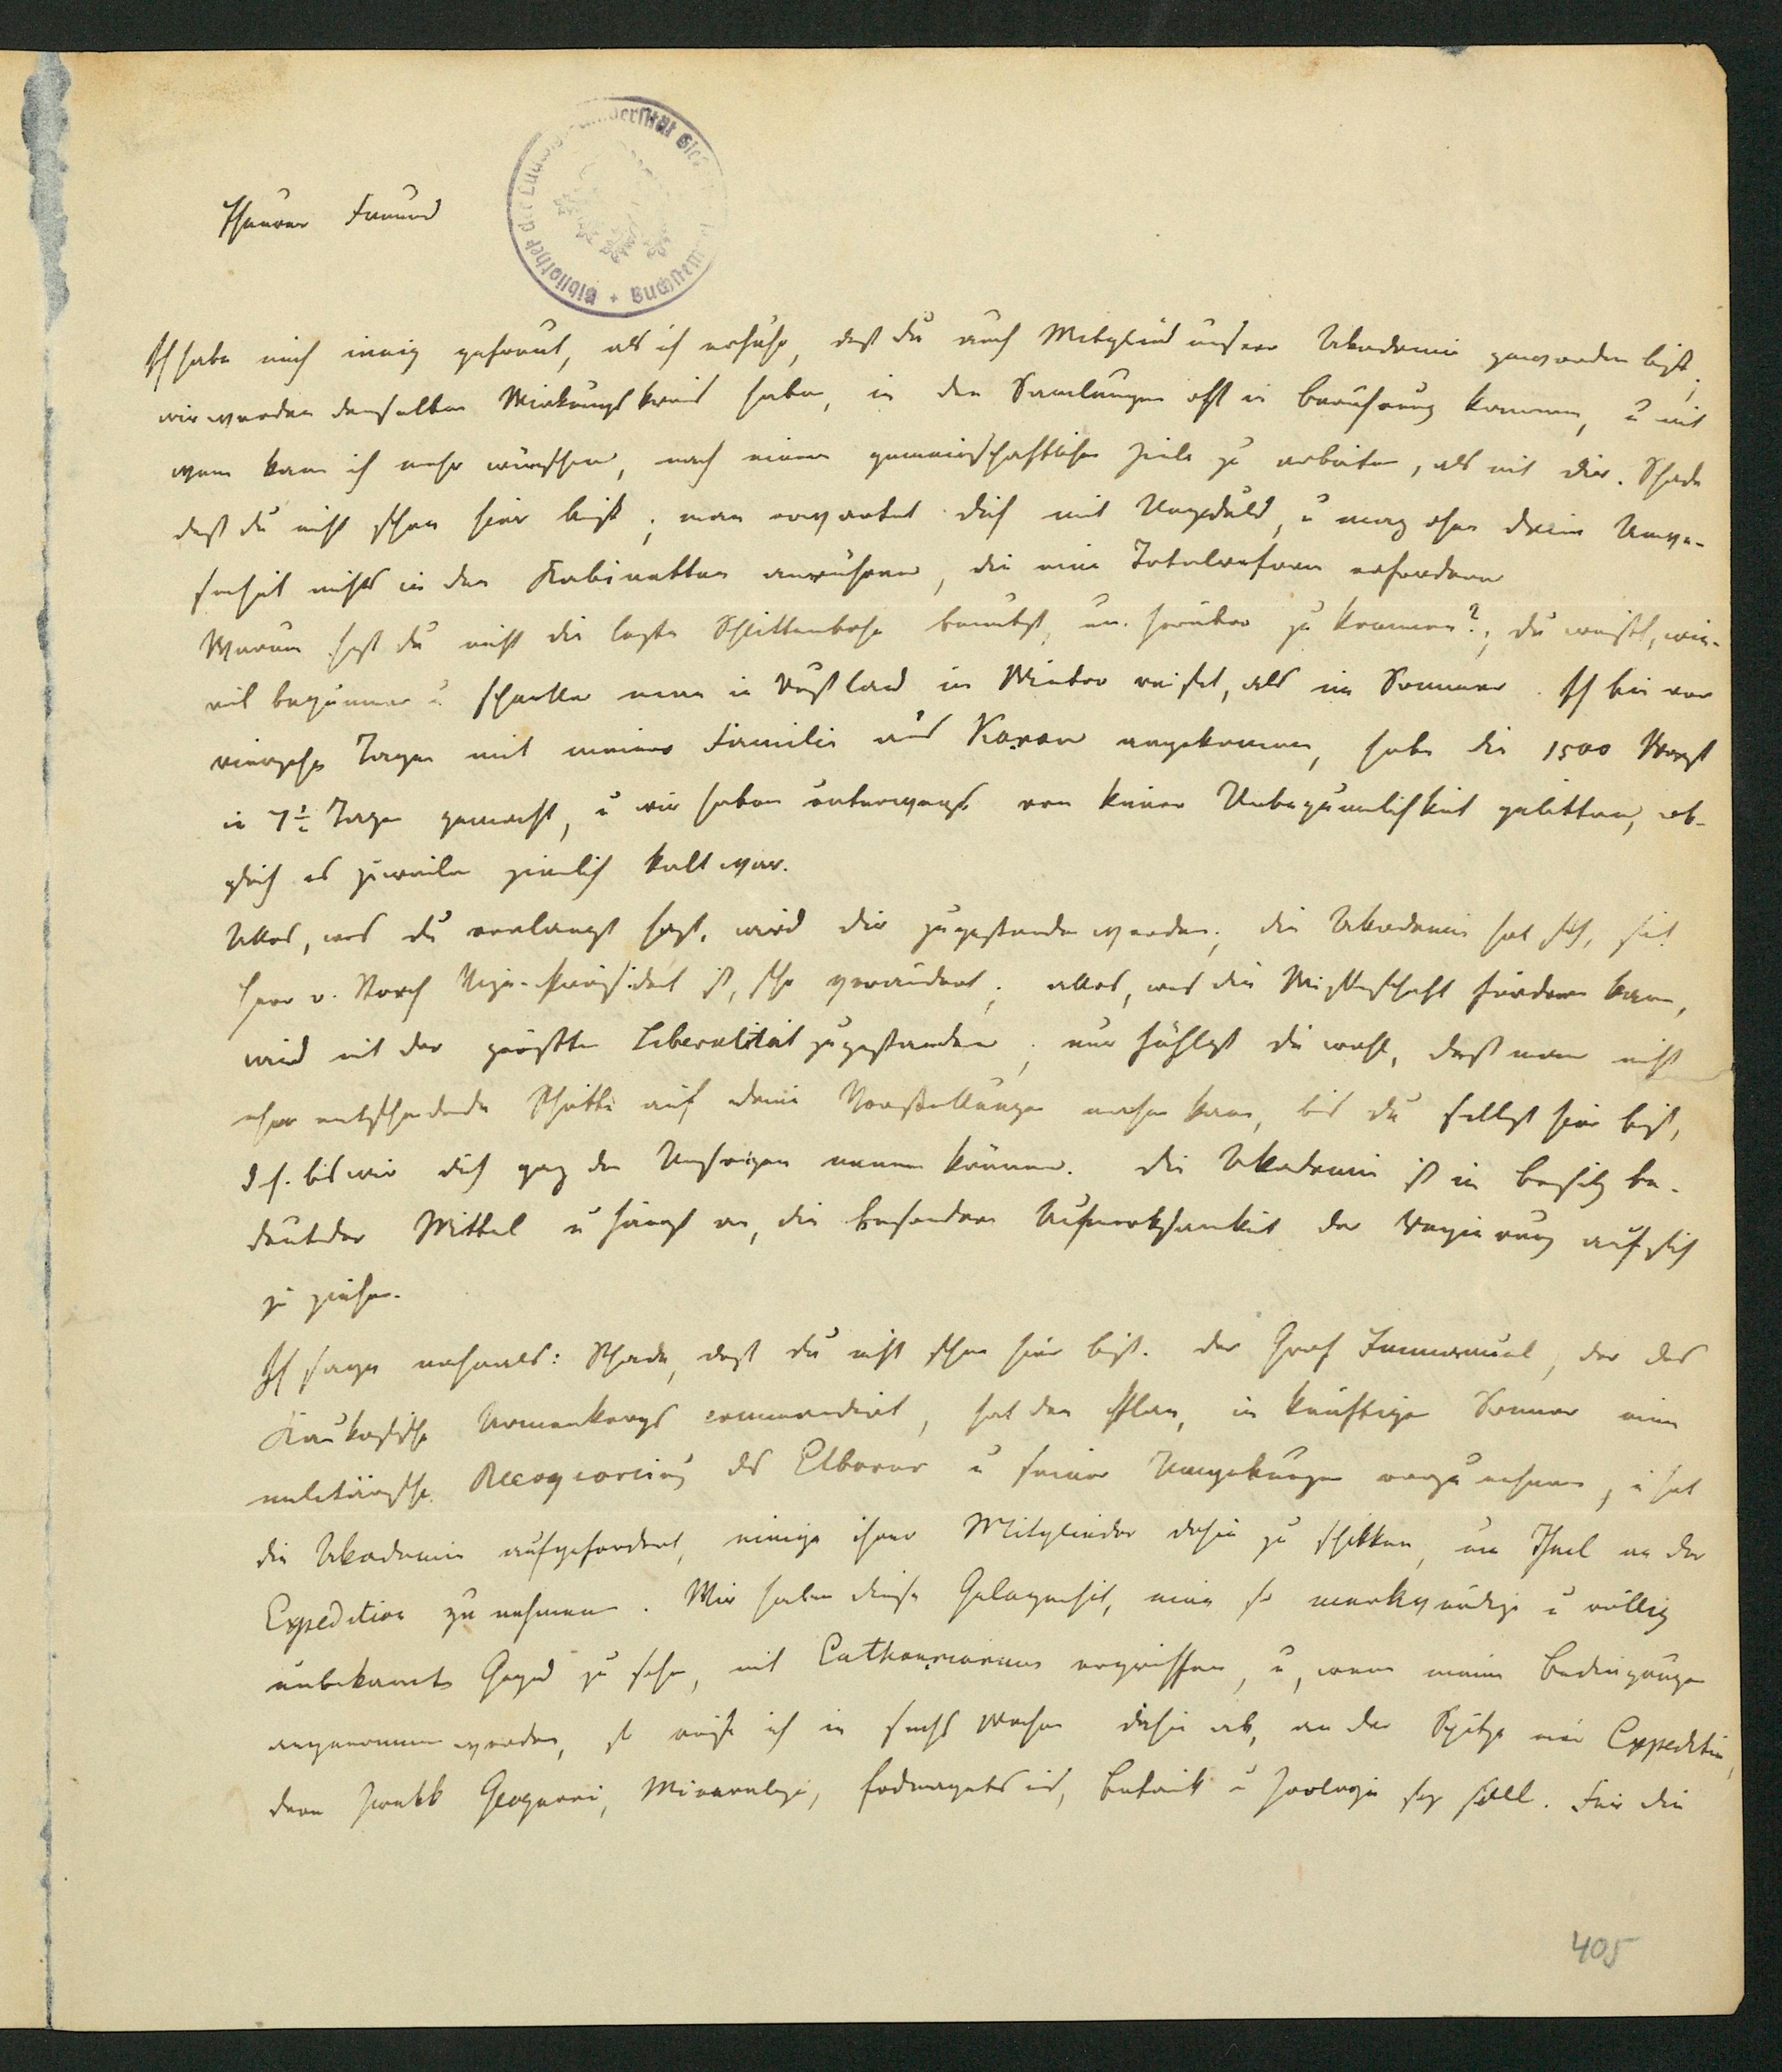 Theurer Freund
Ich habe mich innig gefreut, als ich erfuhr, daß du auch Mitglied unserer Akademie geworden bist;
wir werden denselben Wirkungskreis haben, in den Samlungen oft in Berührung kommen, u mit
wem kann ich mehr wünschen, nach einem gemeinschaftlichen Ziele zu arbeiten, als mit dir. Schade
daß du nicht schon hier bist; man erwartet dich mit Ungeduld, u mag ohne deine Anwe-
senheit nichts in den Kabinetten anrühren, die eine Totalreform erfordern
Warum hast du nicht die lezte Schlittenbahn benutzt, um herüber zu kommen?, du weißt, wie-
viel bequemer u schneller man in Rußland im Winter reiset, als im Sommer. Ich bin vor
vierzehn Tagen mit meiner Familie aus Kasan angekommen, habe die 1500 Werst
in 7½ Tagen gemacht, u wir haben unterwegs von keiner Unbequemlichkeit gelitten, ob-
gleich es zuweilen ziemlich kalt war.
Alles, was du verlangt hast, wird dir zugestanden werden; die Akademie hat sich, seit
Herr v. Storch Vize-Präsident ist, sehr verändert; alles, was die Wissenschaft fördern kann,
wird mit der größten Liberalität zugestanden; nur fühlst du wohl, daß man nicht
eher entscheidende Schritte auf deine Vorstellungen machen kann, bis du selbst hier bist,
d.h. bis wir dich ganz den Unsrigen nennen können. Die Akademie ist im Besitz be-
deutender Mittel u fängt an, die besondere Aufmerksamkeit der Regierung auf sich
zu ziehen.
Ich sage nochmals: Schade, daß du nicht schon hier bist. Der Graf Emmanuel, der das
Kaukasische Armeekorps commandirt, hat den Plan, im künftigen Sommer eine
militärische Recognoscirung des Elborus u seiner Umgebungen vorzunehmen, u hat
die Akademie aufgefordert, einige ihrer Mitglieder dahin zu schikken, um Theil an der
Expedition zu nehmen. Wir haben diese Gelegenheit, eine so merkwürdige u völlig
unbekannte Gegend zu sehen, mit Enthousiasmus ergriffen, u, wenn meine Bedingungen
angenommen werden, so reise ich in sechs Wochen dahin ab, an der Spitze einer Expedition,
deren Zwekk Geognosie, Mineralogie, Erdmagnetismus, Botanik u Zoologie seyn soll. Für die
405
Bibliothek der Ludwigs-Universität Giessen